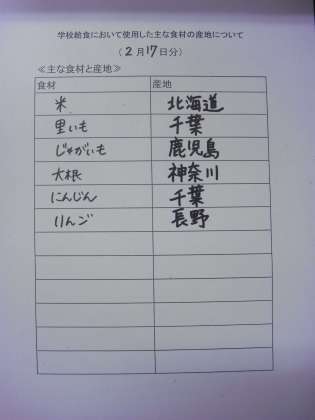 学校給食において使用した主な食材の産地について
(2月17日分)
≪主な食材と産地≫
食材 産地
米 北海道
里いも 千葉
じゃがいも 鹿児島
大根 神奈川
にんじん 千葉
りんご 長野